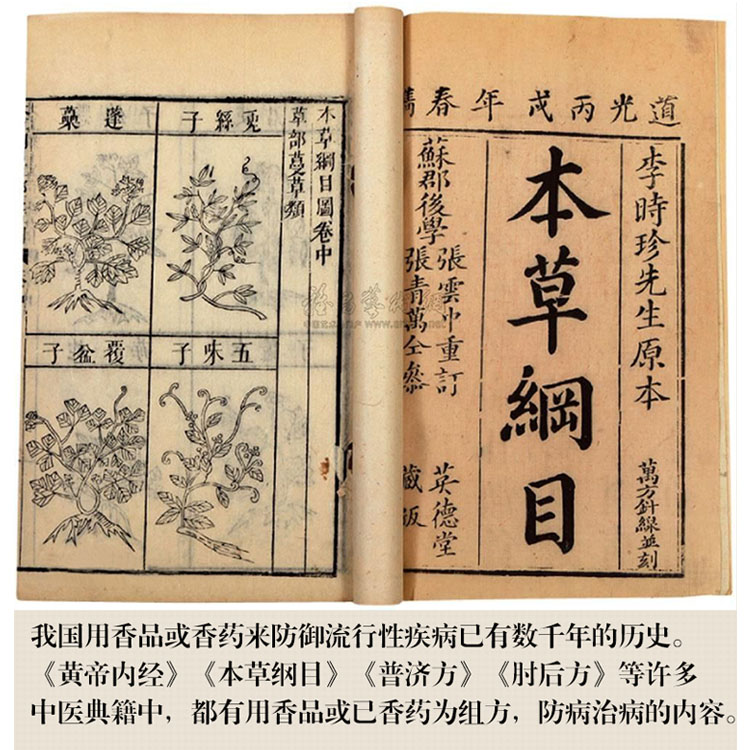 道光丙戌年春
李時珍先生原本
萬方針線並刻
本草綱目
蘇郡後學
張雲中重訂
張青萬仝參
英德堂
藏版
本草綱目圖卷中
草部蔓草類
兔絲子
蓬蘽
五味子
覆盆子
我国用香品或香药来防御流行性疾病已有数千年的历史。
《黄帝内经》《本草纲目》《普济方》《肘后方》等许多
中医典籍中，都有用香品或已香药为组方，防病治病的内容。